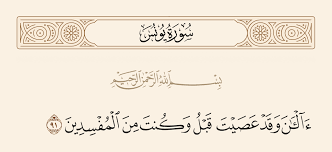 سُورَةُ يُونُسَ
بِسْمِ ٱللَّهِ ٱلرَّحْمَٰنِ ٱلرَّحِيمِ
ءَآلْـَٰٔنَ وَقَدْ عَصَيْتَ قَبْلُ وَكُنتَ مِنَ ٱلْمُفْسِدِينَ ٩١